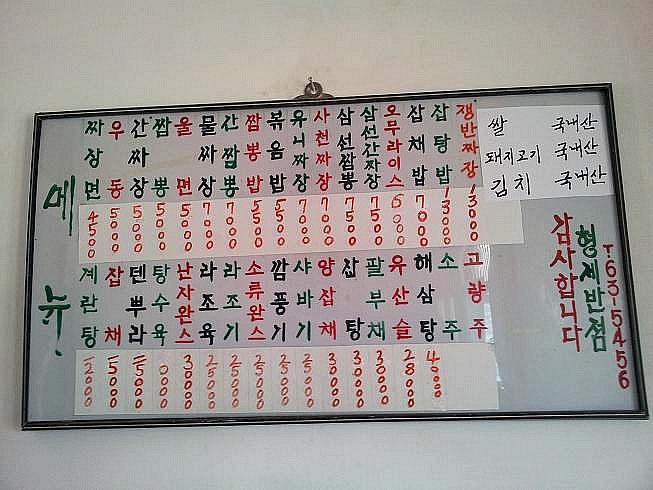 메뉴
짜장면 4500
우동 5000
간짜장 5000
짬뽕 5000
울면 5000
물짜장 7000
간짬뽕 7000
짬뽕밥 5500
볶음밥 5500
유니짜장 7000
사천짜장 7000
삼선짬뽕 7500
삼선간짜장 7500
오무라이스
잡채밥 7000
잡탕밥
쟁반짜장 13000
계란탕 12000
잡채 15000
텐뿌라 15000
탕수육
난자완스 30000
라조육 25000
라조기 25000
소류완스 25000
깜풍기 25000
샤바기 25000
양잡채 30000
잡탕 30000
팔부채 30000
유산슬 28000
해삼탕 40000
소주
고량주
쌀 국내산
돼지고기 국내산
김치 국내산
감사합니다
형제반점
T.63-5456